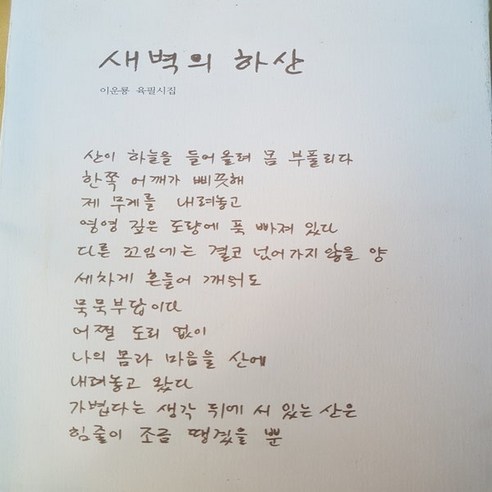 새벽의 하산
이운룡 육필시집
산이 하늘을 들어올려 몸 부풀리다
한쪽 어깨가 삐끗해
제 무게를 내려놓고
영영 깊은 도량에 푹 빠져 있다
다른 꼬임에는 결코 넘어가지 않을 양
세차게 흔들어 깨워도
묵묵부답이다
어쩔 도리 없이
나의 몸과 마음을 산에
내려놓고 왔다
가볍다는 생각 뒤에 서 있는 산은
힘줄이 조금 땡겼을 뿐